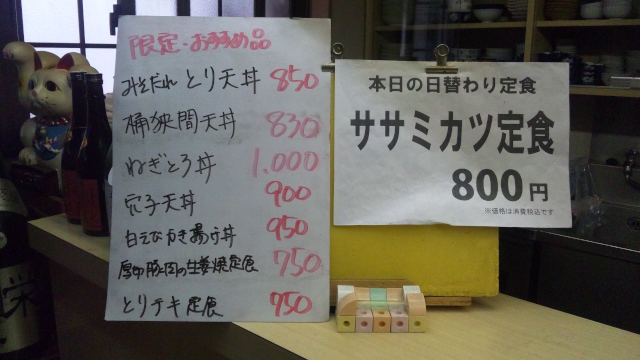 限定・おすすめ品
みそだれ とり天丼 850
桶狭間天丼 830
ねぎとろ丼 1.000
穴子天丼 900
白えびかき揚げ丼 950
厚切豚肉の生姜焼定食 750
とりテキ定食 750
本日の日替わり定食
ササミカツ定食
800円
※価格は消費税込です